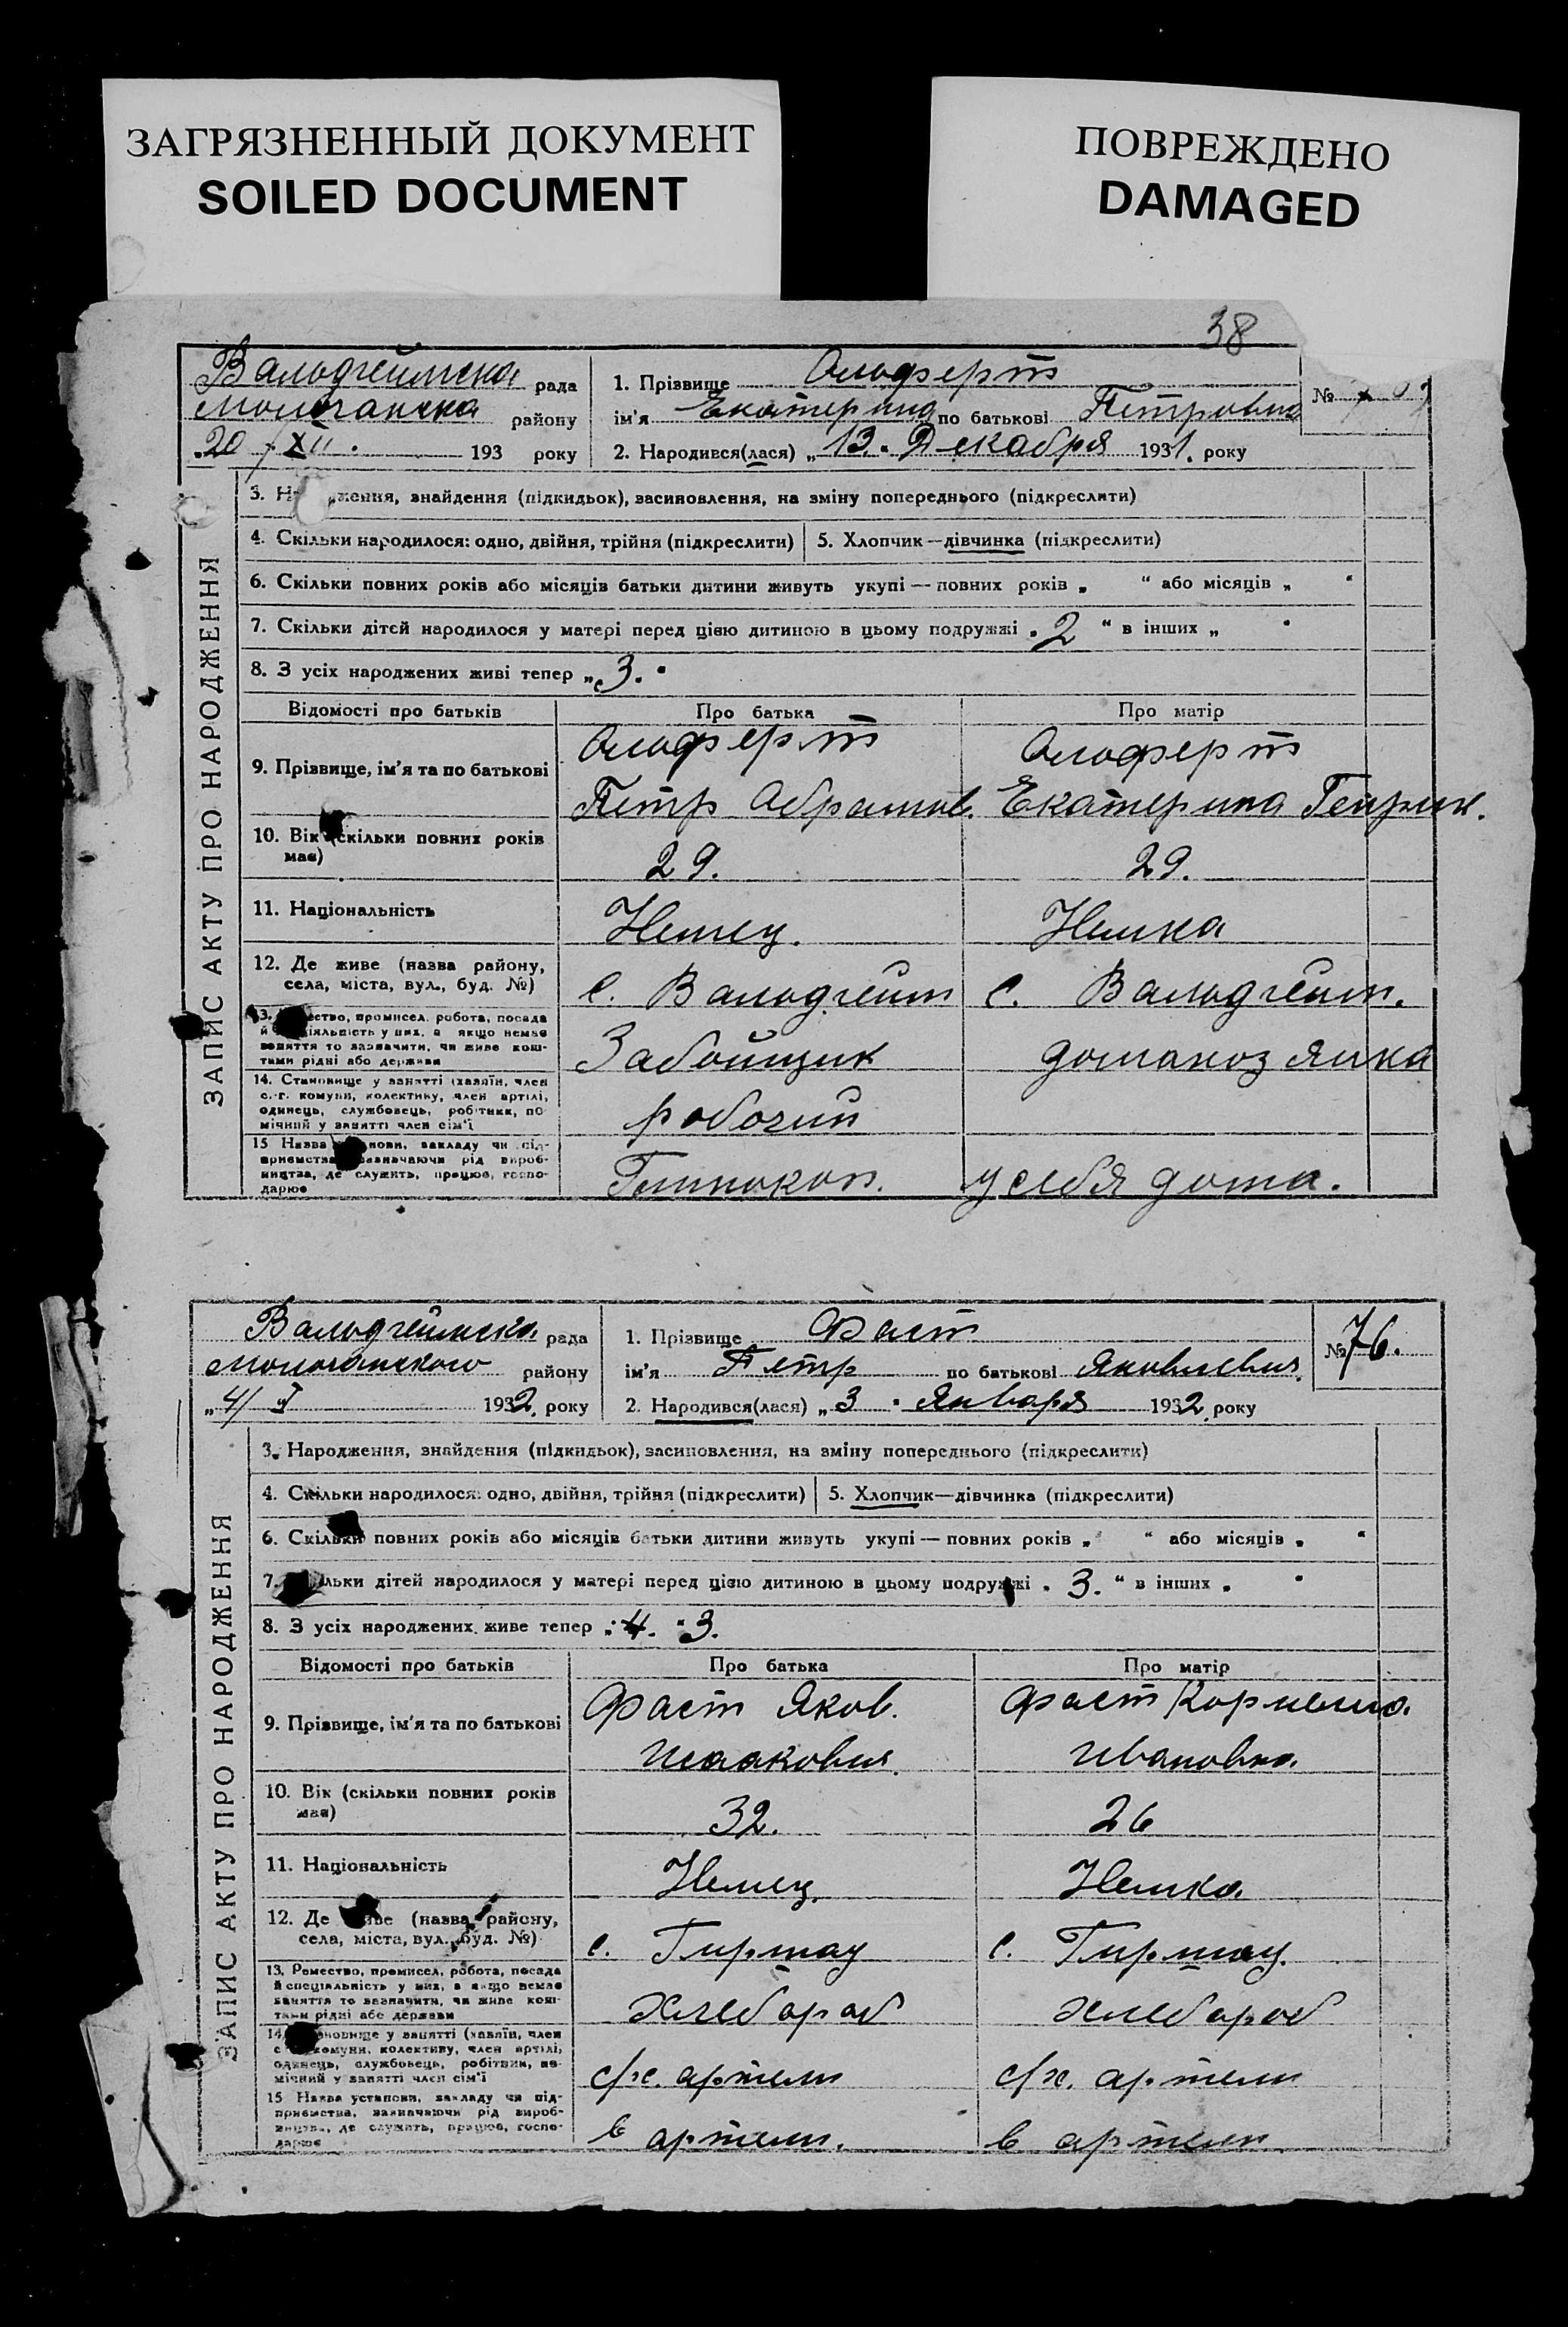 ЗАГРЯЗНЕННЫЙ ДОКУМЕНТ
SOILED DOCUMENT
ПОВРЕЖДЕНО
DAMAGED
38
Вальдгеймска рада
Молочанска району
„20 / XII. 193 року
1. Прізвище Ольферт
ім'я Екатерина по батькові Петровна
2. Народився(лася) „13." Декабря 1931. року
№
ЗАПИС АКТУ ПРО НАРОДЖЕННЯ
3. Народження, знайдення (підкидьок), засиновлення, на зміну попереднього (підкреслити)
4. Скільки народилося: одно, двійня, трійня (підкреслити) 5. Хлопчик—дівчинка (підкреслити)
6. Скільки повних років або місяців батьки дитини живуть укупі — повних років „ “ або місяців „ “
7. Скільки дітей народилося у матері перед цією дитиною в цьому подружжі „2 “ в інших „ “
8. З усіх народжених живі тепер „3."
Відомості про батьків Про батька Про матір
9. Прізвище, ім'я та по батькові
Ольферт Ольферт
Петр Абрамов. Екатерина Генрих.
10. Вік (скільки повних років має) 29. 29.
11. Національність Немец. Немка
12. Де живе (назва району, села, міста, вул., буд. №) с. Вальдгейм с. Вальдгейм.
13. Ремество, промисел, робота, посада
й спеціяльність у них, а якщо немає
заняття то зазначити, чи живе кош-
тами рідні або держави
Забойщик домахозяйка
14. Становище у занятті (хазяїн, член
с.-г. комуни, колективу, член артілі,
одинець, службовець, робітник, по-
мічний у занятті член сім'ї
рабочий
15 Назва установи, закладу чи під-
приємства, зазначаючи рід вироб-
ництва, де служить, працює, госпо-
дарює
у себя дома.
Вальдгеймска рада
Молочанского району
„4/ I 1932. року
1. Прізвище Фаст
ім'я Петр по батькові Яковлевич.
2. Народився(лася) „3 " Января 1932. року
№ 76.
ЗАПИС АКТУ ПРО НАРОДЖЕННЯ
3. Народження, знайдення (підкидьок), засиновлення, на зміну попереднього (підкреслити)
4. Скільки народилося: одно, двійня, трійня (підкреслити) 5. Хлопчик—дівчинка (підкреслити)
6. Скільки повних років або місяців батьки дитини живуть укупі — повних років „ “ або місяців „ “
7. Скільки дітей народилося у матері перед цією дитиною в цьому подружжі „ 3. “ в інших „ “
8. З усіх народжених живе тепер „4. “3.
Відомості про батьків Про батька Про матір
9. Прізвище, ім'я та по батькові
Фаст Яков. Фаст Корнелия.
Исаакович. Ивановна.
10. Вік (скільки повних років має) 32. 26
11. Національність Немец. Немка.
12. Де живе (назва району, села, міста, вул., буд. №) с. Гиршау с. Гиршау.
13. Ремество, промисел, робота, посада
й спеціяльність у них, а якщо немає
заняття то зазначити, чи живе кош-
тами рідні або держави
хлебороб хлебороб
14. Становище у занятті (хазяїн, член
с.-г. комуни, колективу, член артілі,
одинець, службовець, робітник, по-
мічний у занятті член сім'ї
с/х. артели с/х. артели
15 Назва установи, закладу чи під-
приємства, зазначаючи рід вироб-
ництва, де служить, працює, госпо-
дарює
в артели. в артели